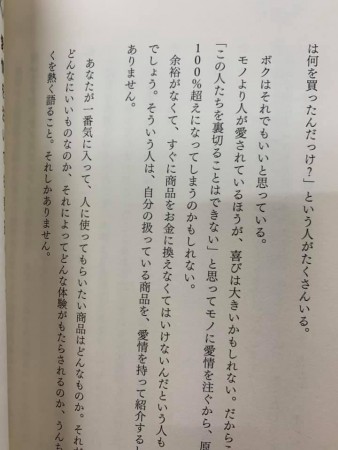 は何を買ったんだっけ?」という人がたくさんいる。
ボクはそれでもいいと思っている。
モノより人が愛されているほうが、喜びは大きいかもしれない。だからこ
「この人たちを裏切ることはできない」と思ってモノに愛情を注ぐから、原
100%超えになってしまうのかもしれない。
余裕がなくて、すぐに商品をお金に換えなくてはいけないんだという人も
でしょう。そういう人は、自分の扱っている商品を、愛情を持って紹介する
ありません。
あなたが一番気に入って、人に使ってもらいたい商品はどんなものか。それ
どんなにいいものなのか、それによってどんな体験がもたらされるのか、うんち
くを熱く語ること。それしかありません。